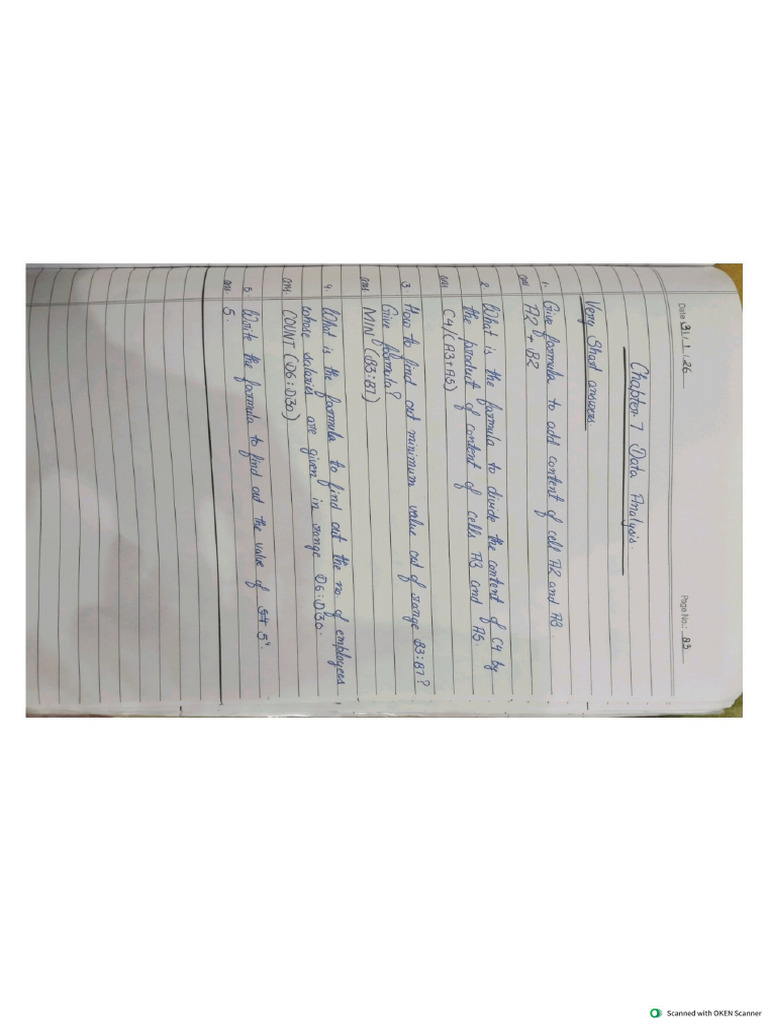 Date 31/1/26
Page No.: 83
Chapter 7 Data Analysis.
Very Short answers
1. Give formula to add content of cell A2 and A3.
ans A2 + B2
2. What is the formula to divide the content of C4 by
the product of content of cells A3 and A5.
ans C4/(A3+A5)
3. How to find out minimum value out of range B3:B7?
Give formula?
ans. MIN (B3:B7)
4. What is the formula to find out the no. of employees
whose salaries are given in range D6:D30.
ans. COUNT (D6:D30)
5. Write the formula to find out the value of 5⁴.
ans 5.
Scanned with OKEN Scanner